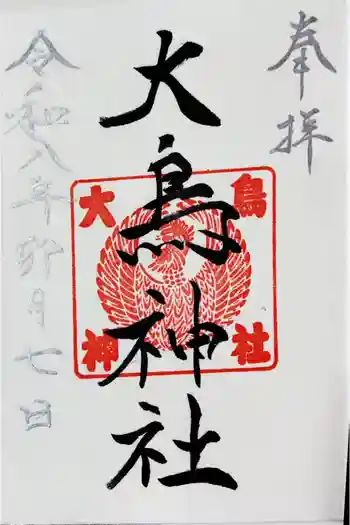 奉拝
大鳥神社
大鳥神社
令和八年卯月七日